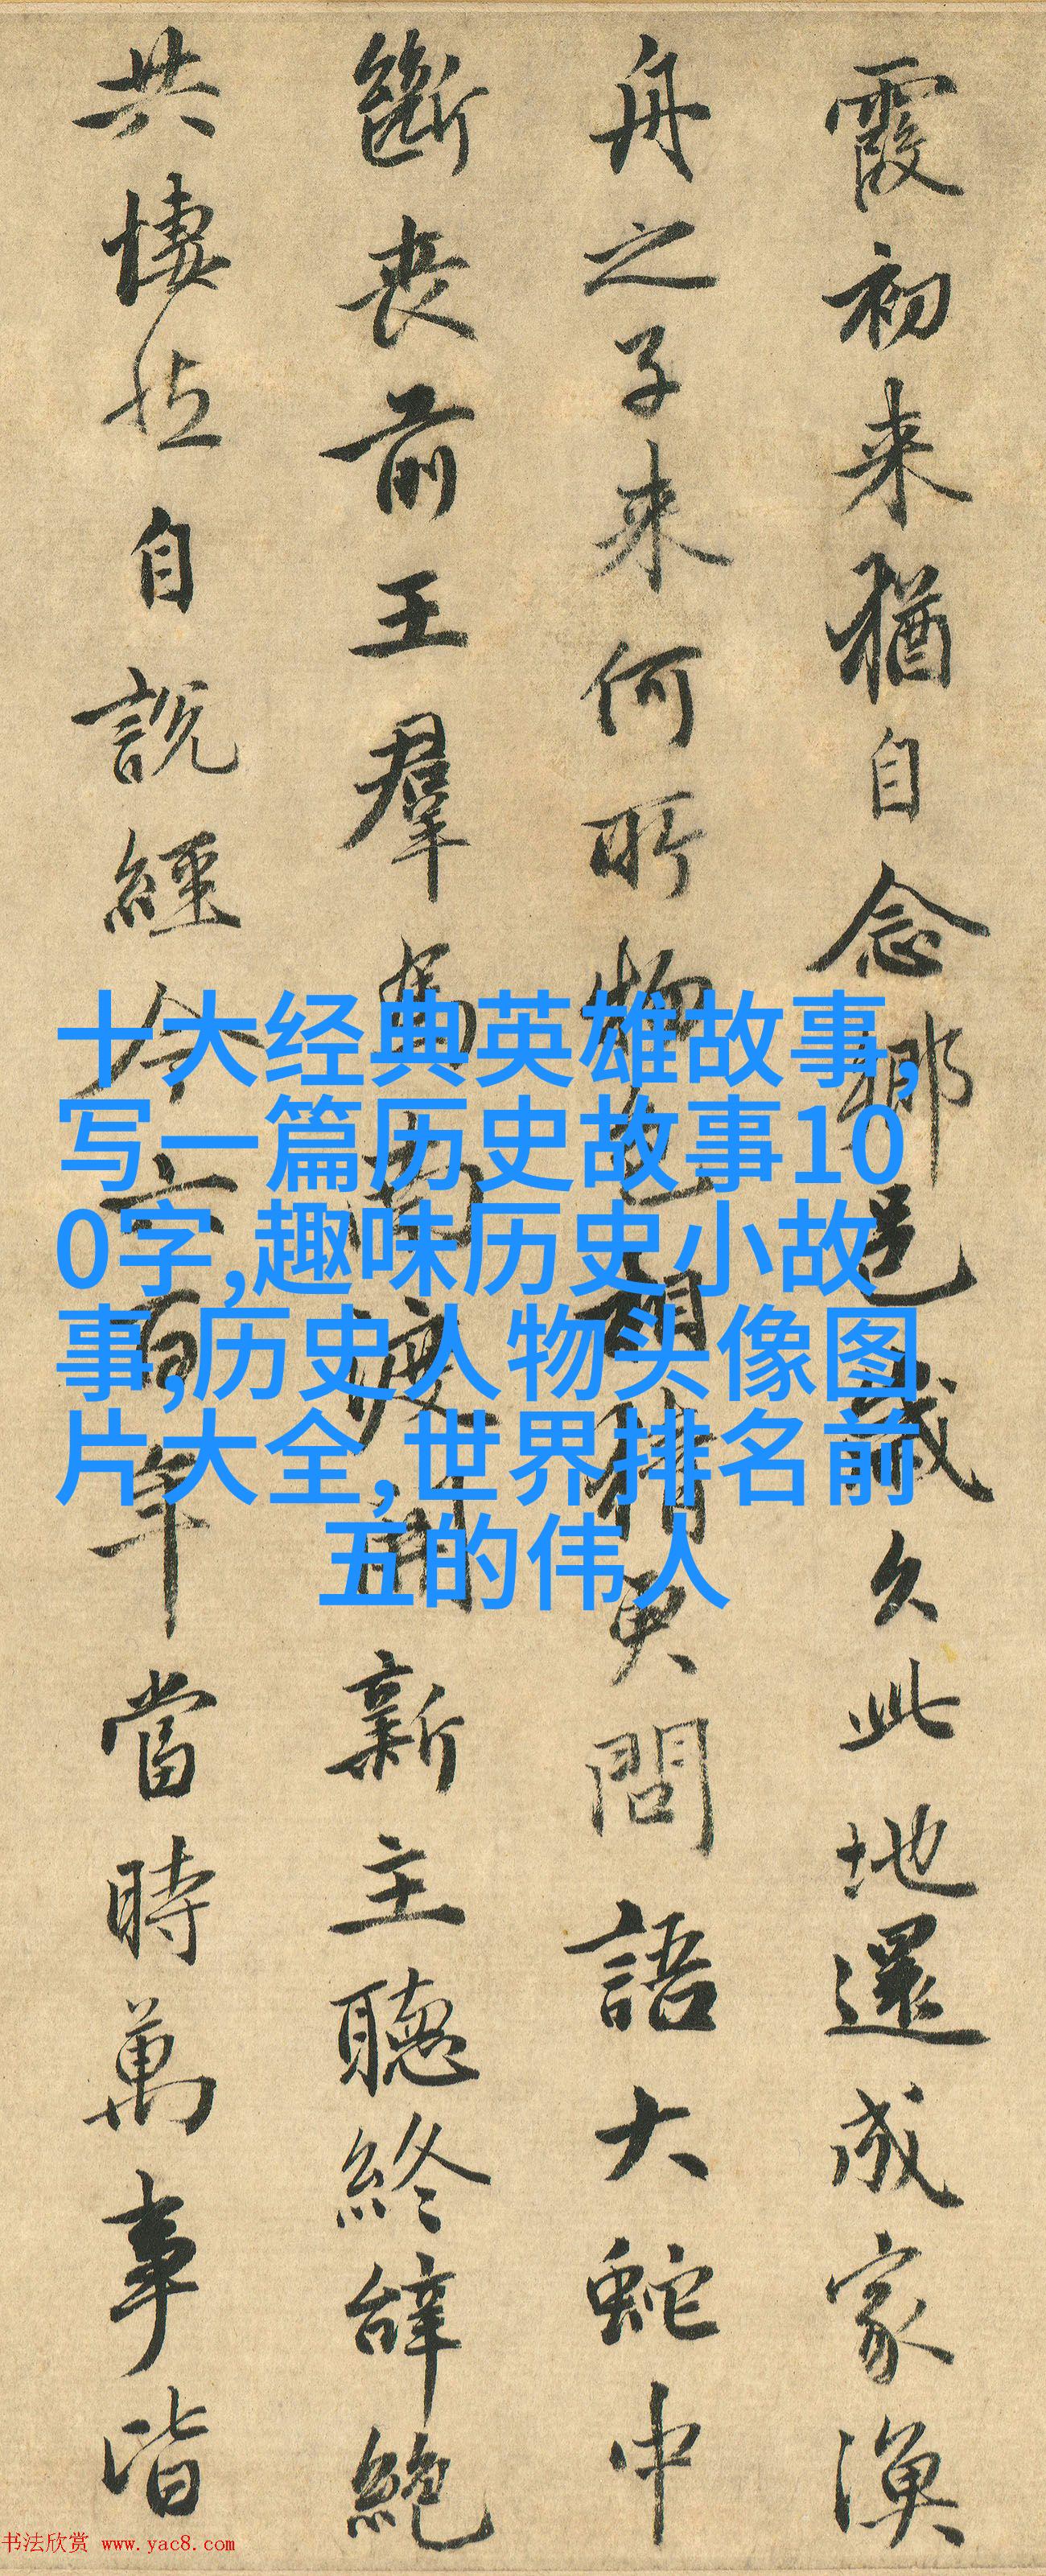 霞初来猶自念鄉邑歲久此地還成家漁
舟之子来何所物色相猜更問語大蛇中
斷喪前王羣馬南渡開新主聽終辭絕
共悽然自說經今六百年當時萬事皆
十大经典英雄故事,
写一篇历史故事10
0字,趣味历史小故
事,历史人物头像图
片大全,世界排名前
五的伟人
书法欣赏 www.yac8.com